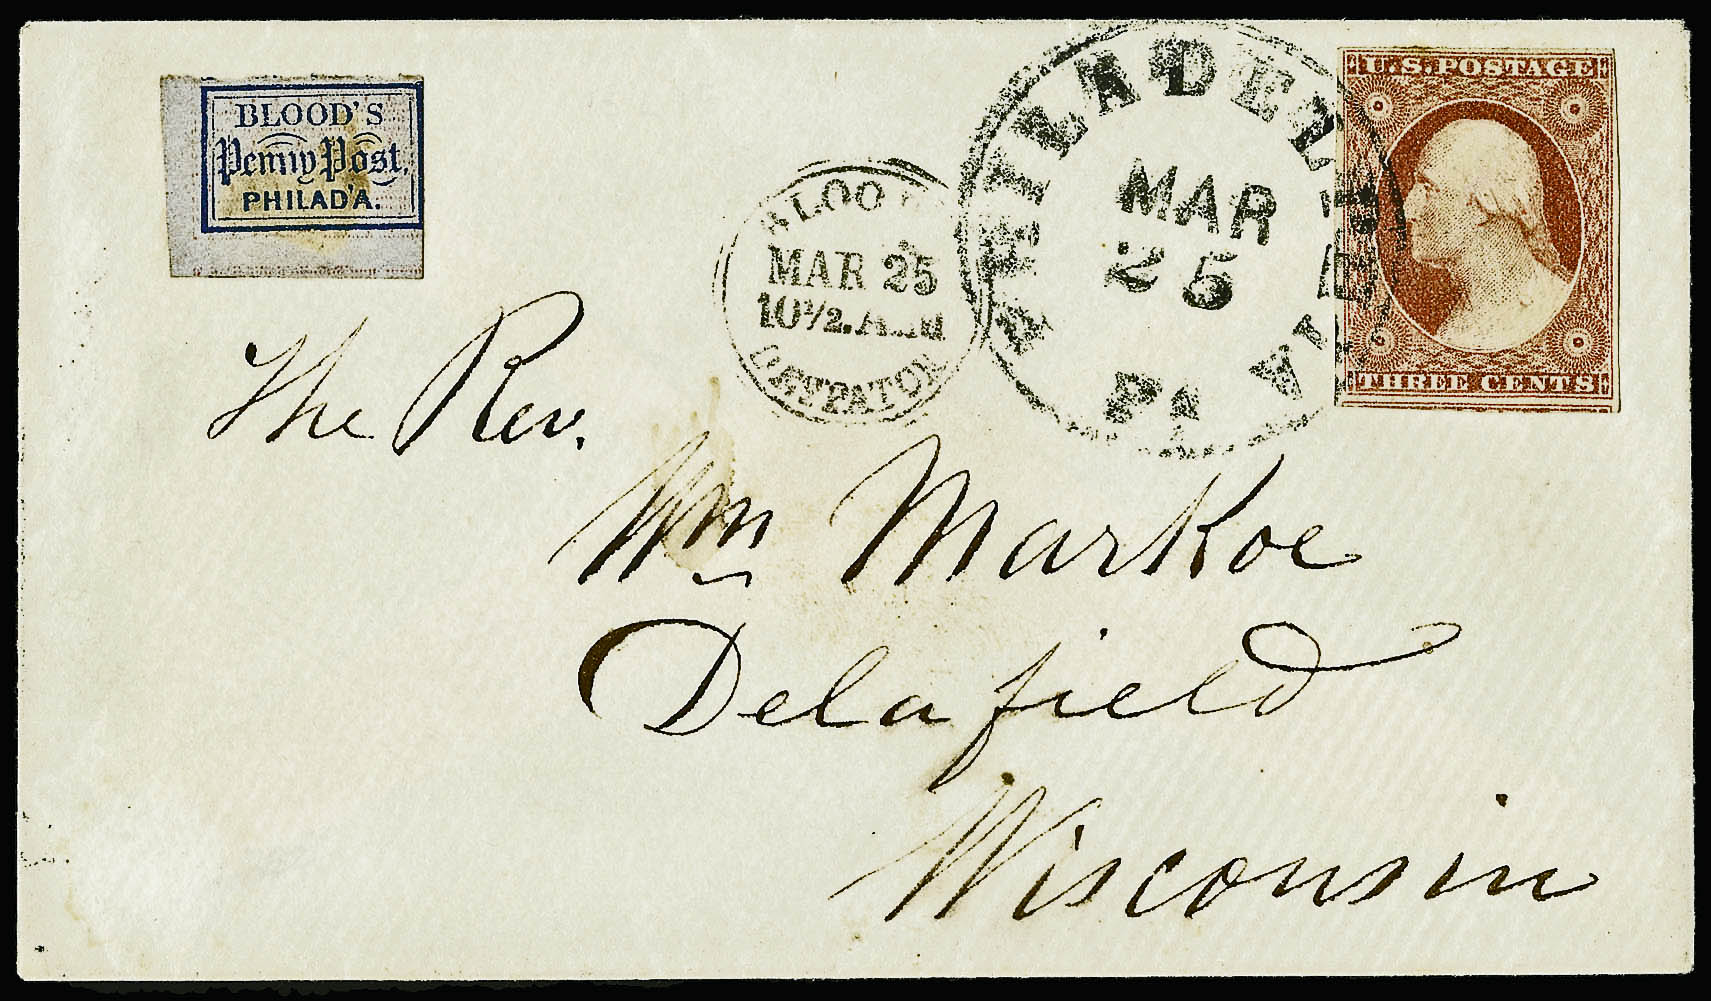 BLOOD'S
Penny Post.
PHILAD'A.
BLOOD'S
MAR 25
10½.A.M
DESPATCH
PHILADELPHIA
MAR
25
Pa
U.S. POSTAGE
THREE CENTS
The Rev.
Wm Markoe
Delafield
Wisconsin